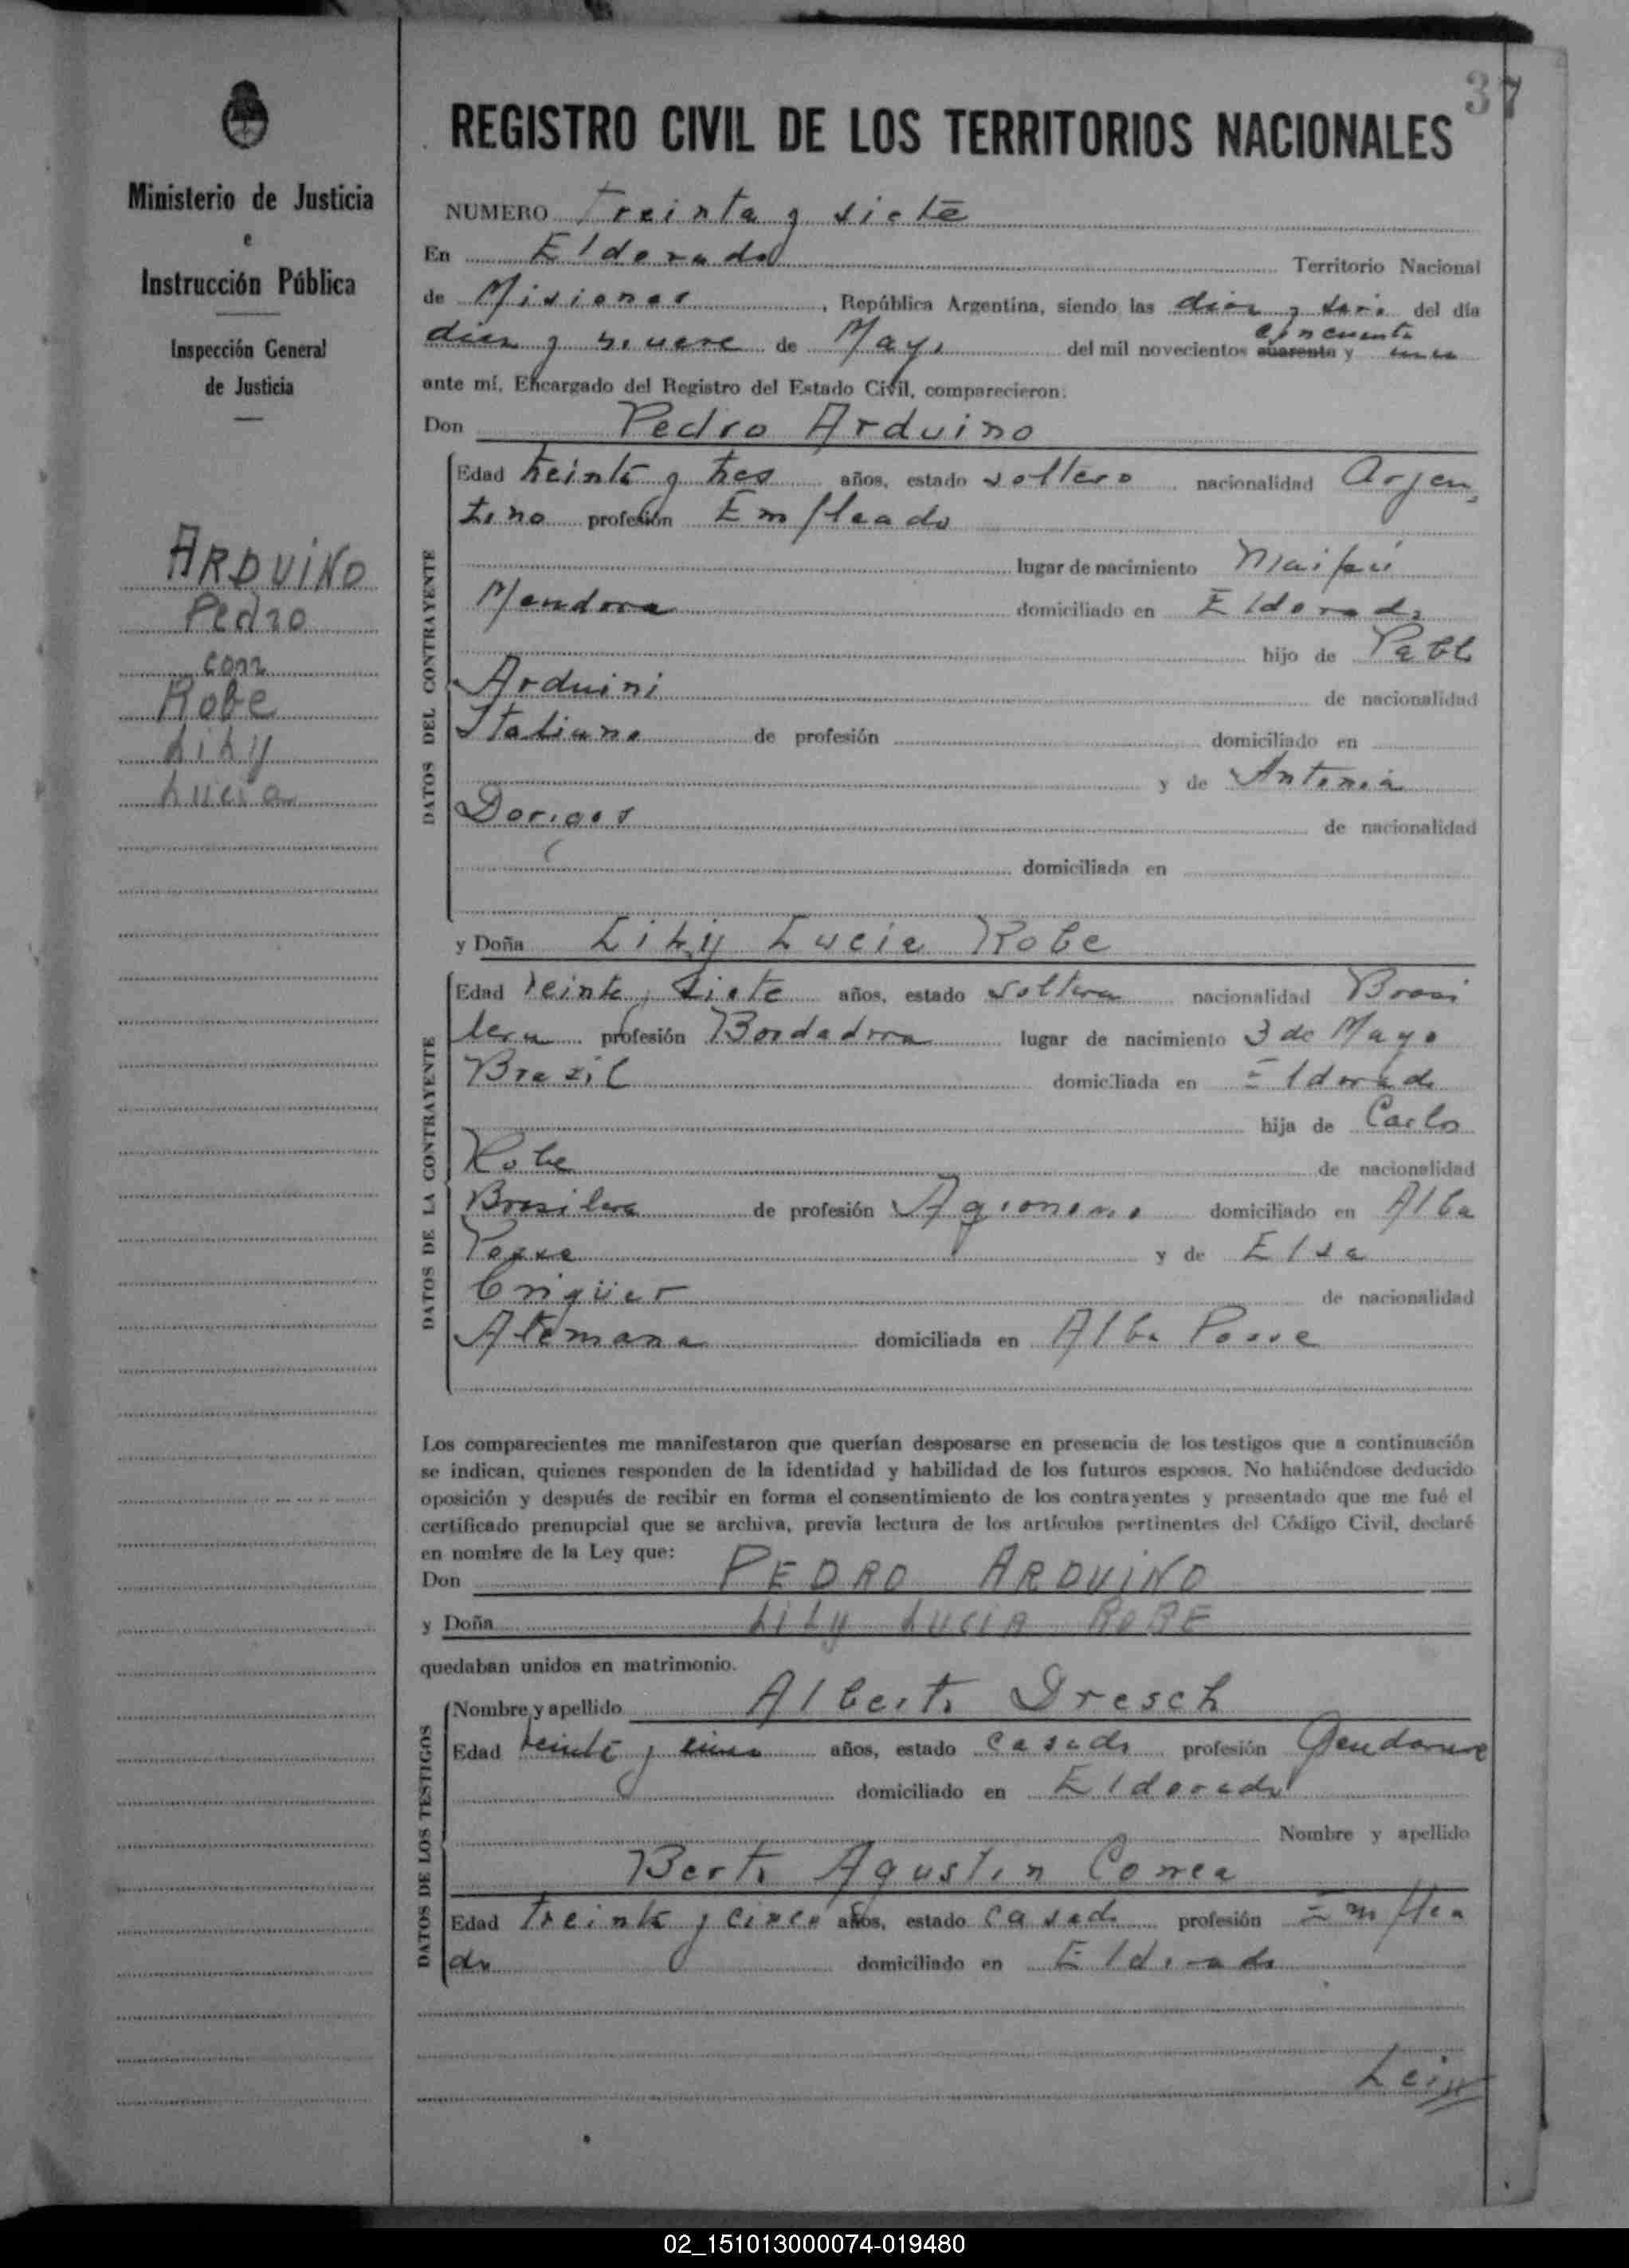 37
REGISTRO CIVIL DE LOS TERRITORIOS NACIONALES
Ministerio de Justicia
e
Instrucción Pública
Inspección General
de Justicia
ARDUINO
Pedro
con
Robe
Lily
Lucia
NUMERO Treinta y siete
En Eldorado Territorio Nacional
de Misiones, República Argentina, siendo las diez y seis del día
diez y nueve de Mayo del mil novecientos cuarenta cincuenta y uno
ante mí, Encargado del Registro del Estado Civil, comparecieron:
Don Pedro Arduino
DATOS DEL CONTRAYENTE
Edad treinta y tres años, estado soltero nacionalidad Argen
tino profesión Empleado
lugar de nacimiento Maipú
Mendoza domiciliado en Eldorado
hijo de Pablo
Arduini de nacionalidad
Italiano de profesión domiciliado en
y de Antonia
de nacionalidad
domiciliada en
y Doña Lily Lucia Robe
DATOS DE LA CONTRAYENTE
Edad veinte y siete años, estado soltera nacionalidad Brasi
lera profesión Bordadora lugar de nacimiento 3 de Mayo
Brazil domiciliada en Eldorado
hija de Carlos
Robe de nacionalidad
Brasilera de profesión Agronomo domiciliado en Alba
Posse y de Elsa
de nacionalidad
Alemana domiciliada en Alba Posse
Los comparecientes me manifestaron que querían desposarse en presencia de los testigos que a continuación
se indican, quienes responden de la identidad y habilidad de los futuros esposos. No habiéndose deducido
oposición y después de recibir en forma el consentimiento de los contrayentes y presentado que me fué el
certificado prenupcial que se archiva, previa lectura de los artículos pertinentes del Código Civil, declaré
en nombre de la Ley que:
Don PEDRO ARDUINO
y Doña LILY LUCIA ROBE
quedaban unidos en matrimonio.
DATOS DE LOS TESTIGOS
Nombre y apellido Alberto Dresch
Edad años, estado casado profesión Gendarme
domiciliado en Eldorado
Nombre y apellido
Berto Agustin Correa
Edad treinta y cinco años, estado casado profesión Emplea
do domiciliado en Eldorado
02_151013000074-019480